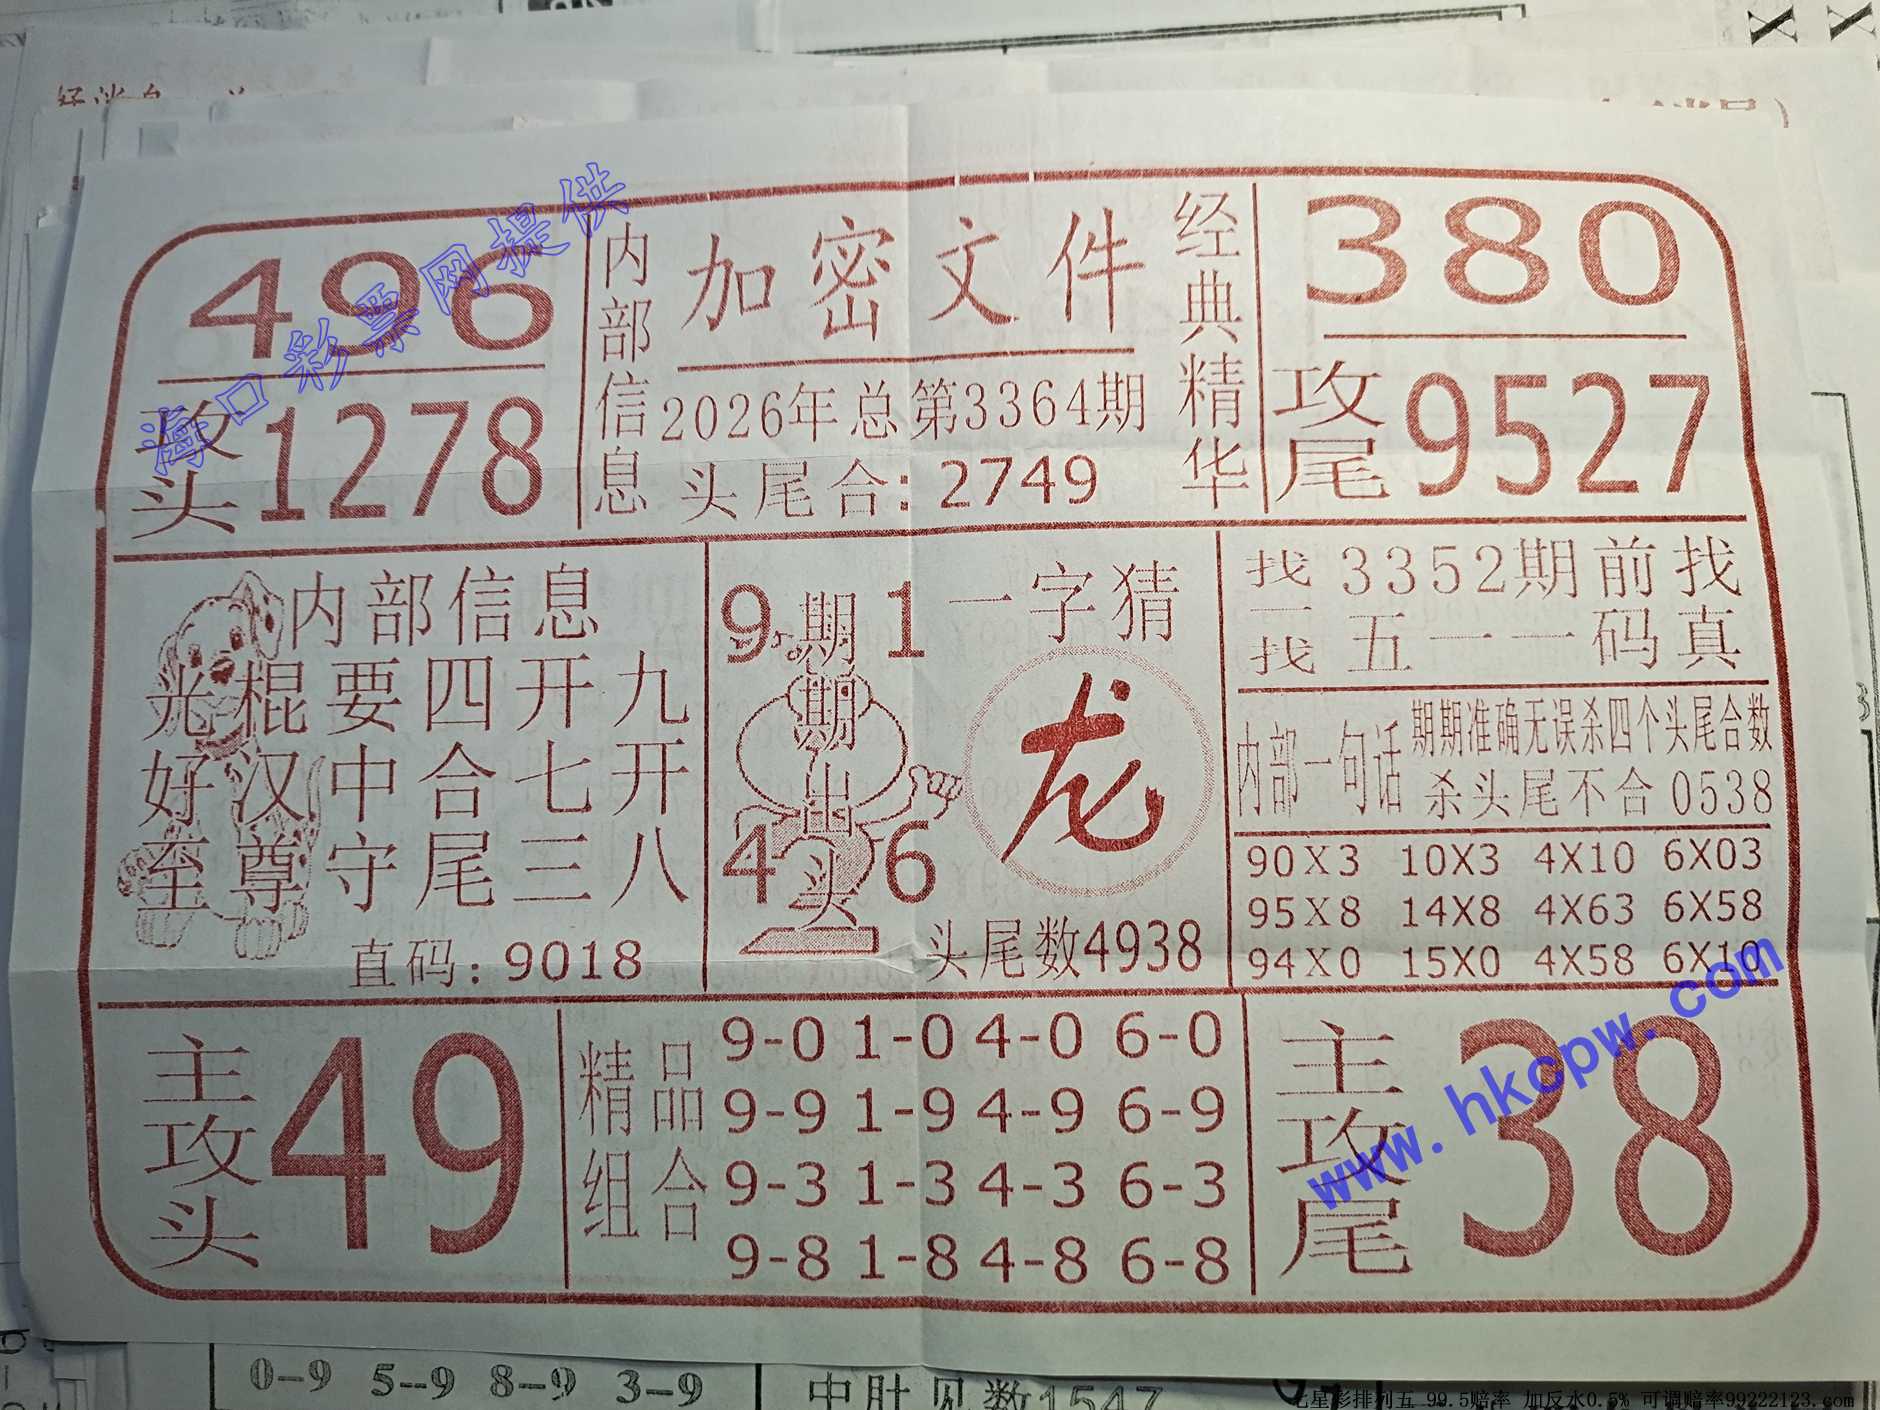 496
攻头
1278
内部信息
加密文件
2026年总第3364期
头尾合:2749
经典精华
380
攻尾
9527
内部信息
光棍要四开九
好汉中合七开
至尊守尾三八
直码:9018
9 1
期期出头
4 6
一字猜
龙
头尾数4938
找一找
3352期前找
五一一码真
内部一句话
期期准确无误杀四个头尾合数
杀头尾不合0538
90X3 10X3 4X10 6X03
95X8 14X8 4X63 6X58
94X0 15X0 4X58 6X10
主攻头
49
精品组合
9-0 1-0 4-0 6-0
9-9 1-9 4-9 6-9
9-3 1-3 4-3 6-3
9-8 1-8 4-8 6-8
主攻尾
38
海口彩票网提供
www.hkcpw.com
0-9 5--9 8-9 3-9
中肚见数1547
七星彩排列五 99.5赔率 加反水0.5% 可调赔率99222123.com
X X